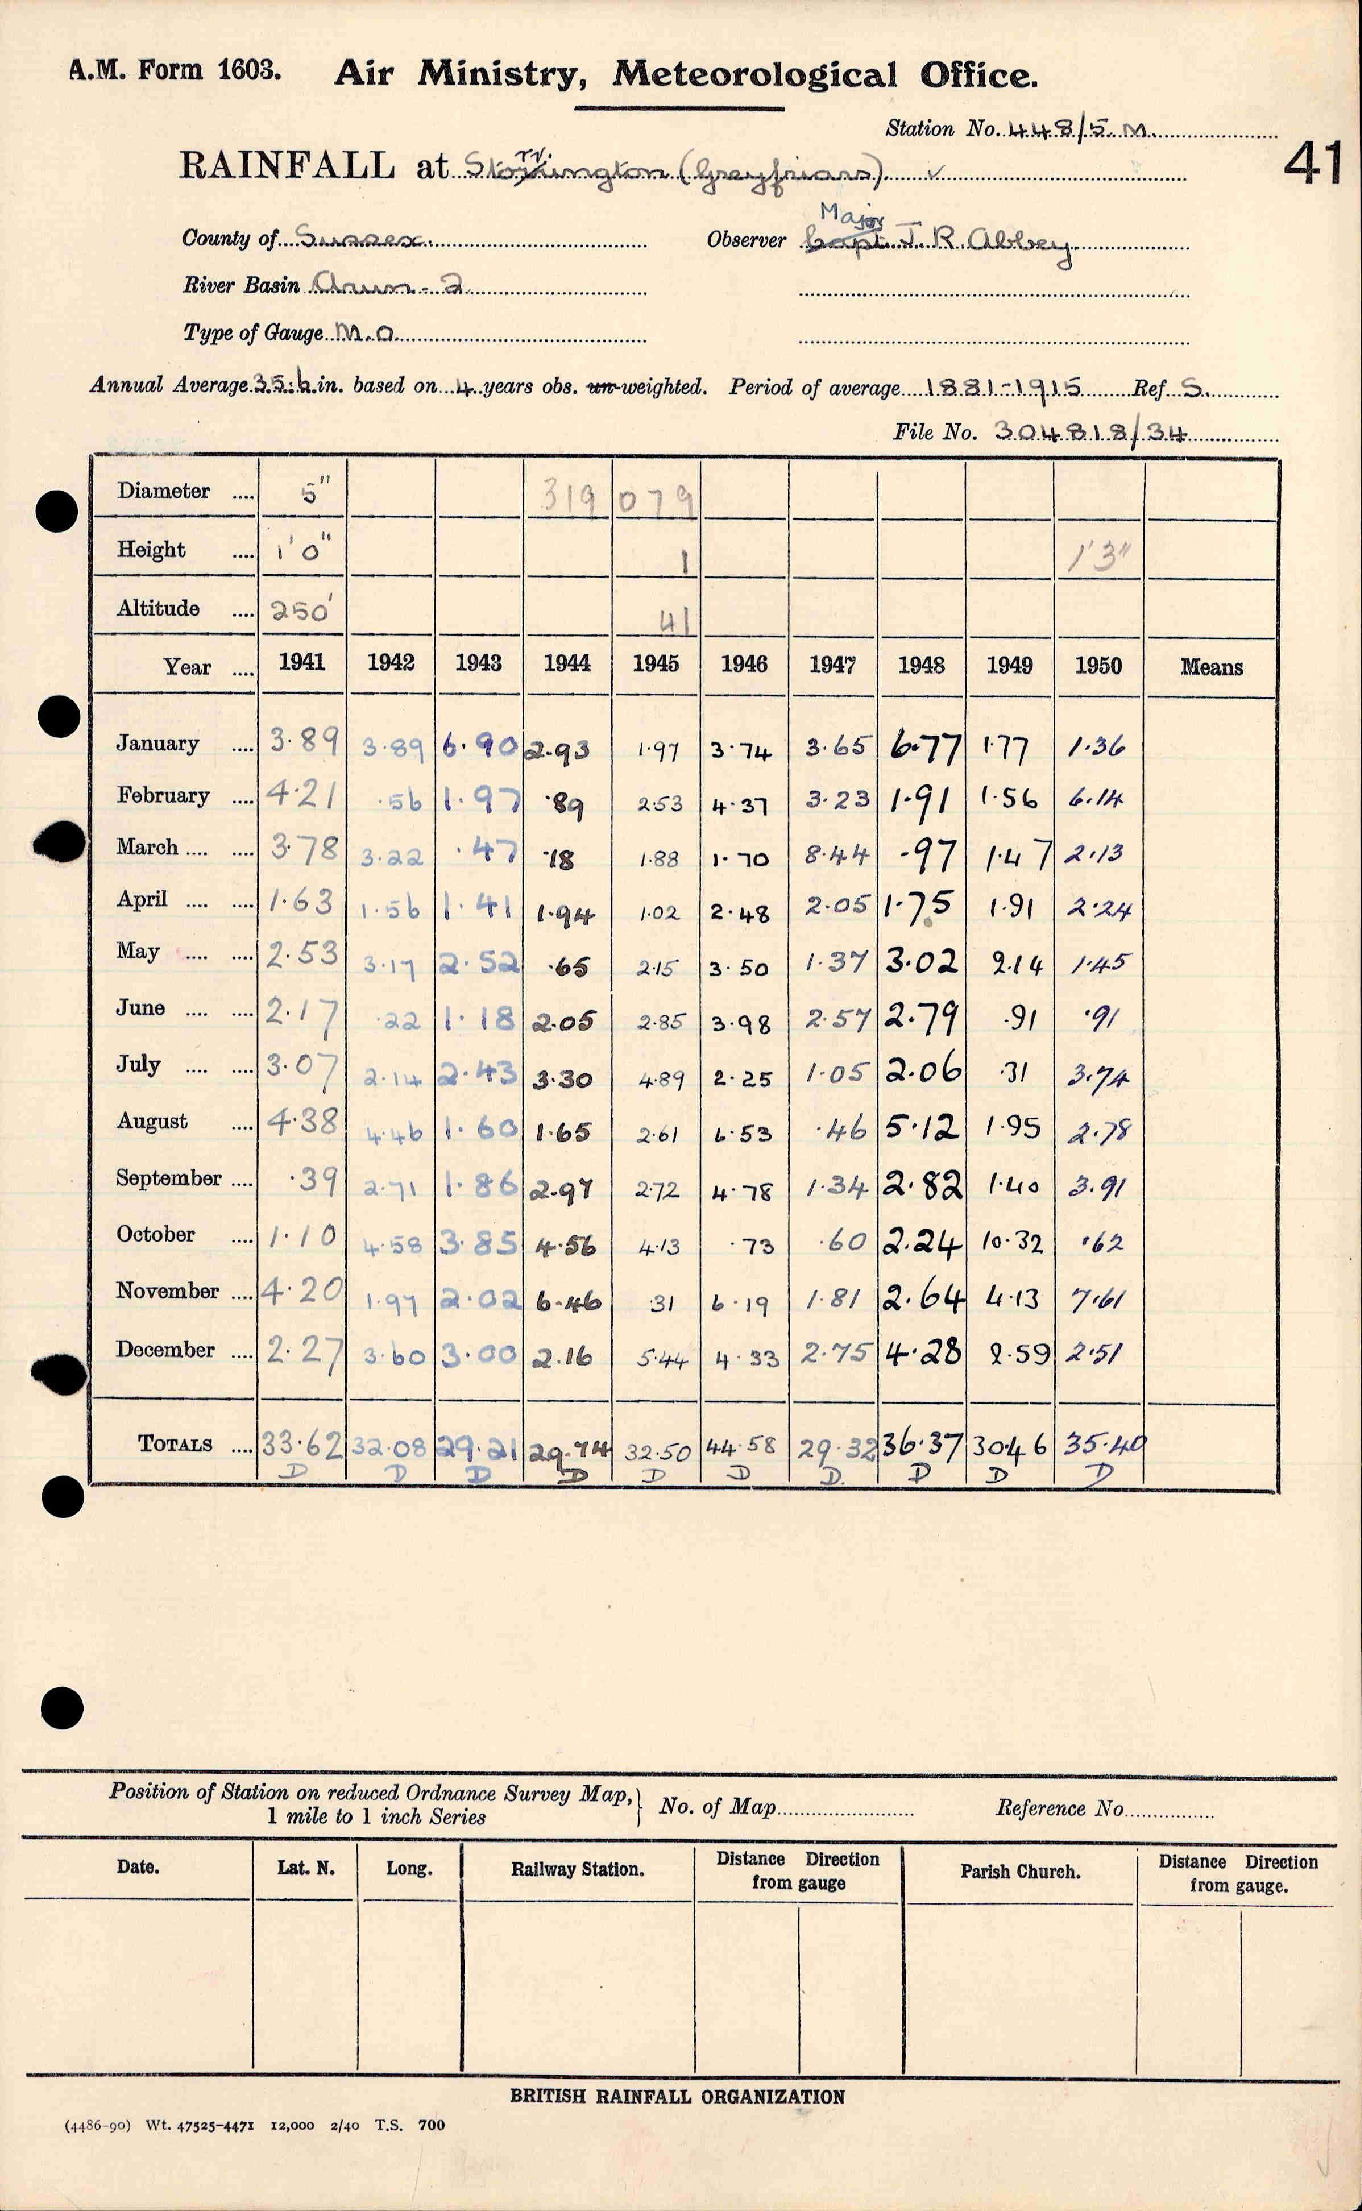 A.M. Form 1603. Air Ministry, Meteorological Office.
Station No. 448/5.M.
41
RAINFALL at Storrington (Greyfriars) ✓
Major
County of Sussex. Observer Capt. J. R. Abbey
River Basin Arun - 2
Type of Gauge M.O.
Annual Average 35.6 in. based on 4 years obs. un-weighted. Period of average 1881-1915 Ref S.
File No. 304818/34
Diameter .... 5" 319 079
Height .... 1'0" 1 1'3"
Altitude .... 250' 41
Year .... 1941 1942 1943 1944 1945 1946 1947 1948 1949 1950 Means
January .... 3.89 3.89 6.90 2.93 1.97 3.74 3.65 6.77 1.77 1.36
February .... 4.21 .56 1.97 .89 2.53 4.37 3.23 1.91 1.56 6.14
March .... .... 3.78 3.22 .47 .18 1.88 1.70 8.44 .97 1.47 2.13
April .... .... 1.63 1.56 1.41 1.94 1.02 2.48 2.05 1.75 1.91 2.24
May .... .... 2.53 3.17 2.52 .65 2.15 3.50 1.37 3.02 2.14 1.45
June .... .... 2.17 .22 1.18 2.05 2.85 3.98 2.57 2.79 .91 .91
July .... .... 3.07 2.14 2.43 3.30 4.89 2.25 1.05 2.06 .31 3.74
August .... 4.38 4.46 1.60 1.65 2.61 6.53 .46 5.12 1.95 2.78
September .... .39 2.71 1.86 2.97 2.72 4.78 1.34 2.82 1.40 3.91
October .... 1.10 4.58 3.85 4.56 4.13 .73 .60 2.24 10.32 .62
November .... 4.20 1.97 2.02 6.46 31 6.19 1.81 2.64 4.13 7.61
December .... 2.27 3.60 3.00 2.16 5.44 4.33 2.75 4.28 2.59 2.51
TOTALS .... 33.62 32.08 29.21 29.74 32.50 44.58 29.32 36.37 30.46 35.40
D D D D D D D. D D D
Position of Station on reduced Ordnance Survey Map, } No. of Map Reference No
1 mile to 1 inch Series
Date. Lat. N. Long. Railway Station. Distance Direction from gauge Parish Church. Distance Direction from gauge.
BRITISH RAINFALL ORGANIZATION
(4486-90) Wt. 47525-4471 12,000 2/40 T.S. 700